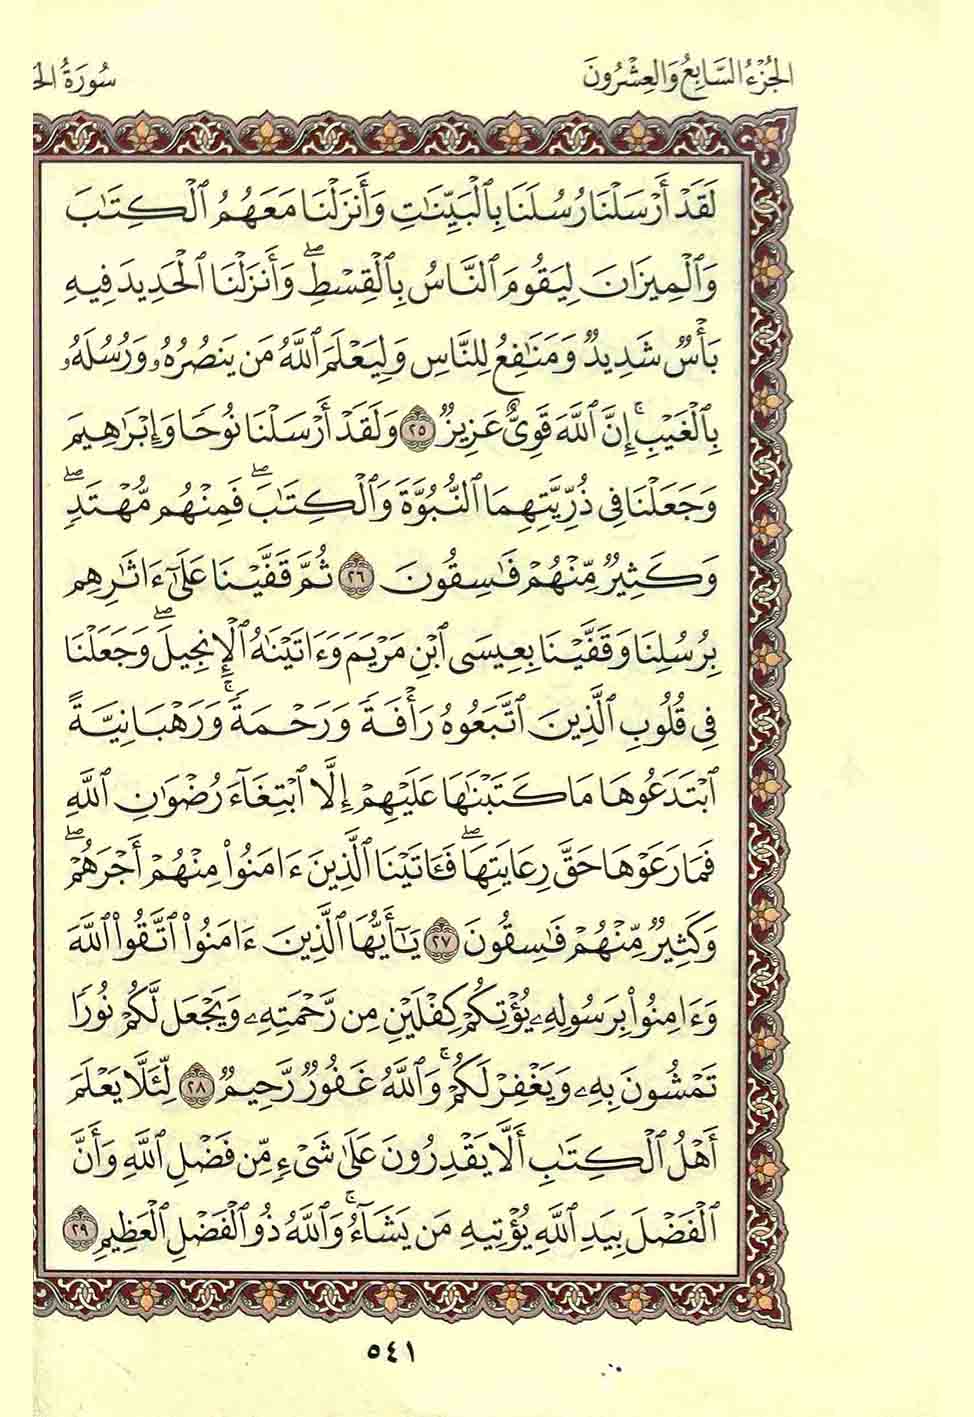 الجُزْءُ السَّابِعُ وَالعِشْرُونَ
سُورَةُ
لَقَدْ أَرْسَلْنَا رُسُلَنَا بِٱلْبَيِّنَٰتِ وَأَنزَلْنَا مَعَهُمُ ٱلْكِتَٰبَ
وَٱلْمِيزَانَ لِيَقُومَ ٱلنَّاسُ بِٱلْقِسْطِۖ وَأَنزَلْنَا ٱلْحَدِيدَ فِيهِ
بَأْسٌ شَدِيدٌ وَمَنَٰفِعُ لِلنَّاسِ وَلِيَعْلَمَ ٱللَّهُ مَن يَنصُرُهُۥ وَرُسُلَهُۥ
بِٱلْغَيْبِۚ إِنَّ ٱللَّهَ قَوِىٌّ عَزِيزٌ ٢٥ وَلَقَدْ أَرْسَلْنَا نُوحًا وَإِبْرَٰهِيمَ
وَجَعَلْنَا فِى ذُرِّيَّتِهِمَا ٱلنُّبُوَّةَ وَٱلْكِتَٰبَۖ فَمِنْهُم مُّهْتَدٍۖ
وَكَثِيرٌ مِّنْهُمْ فَٰسِقُونَ ٢٦ ثُمَّ قَفَّيْنَا عَلَىٰٓ ءَاثَٰرِهِم
بِرُسُلِنَا وَقَفَّيْنَا بِعِيسَى ٱبْنِ مَرْيَمَ وَءَاتَيْنَٰهُ ٱلْإِنجِيلَۖ وَجَعَلْنَا
فِى قُلُوبِ ٱلَّذِينَ ٱتَّبَعُوهُ رَأْفَةً وَرَحْمَةًۚ وَرَهْبَانِيَّةً
ٱبْتَدَعُوهَا مَا كَتَبْنَٰهَا عَلَيْهِمْ إِلَّا ٱبْتِغَآءَ رِضْوَٰنِ ٱللَّهِ
فَمَا رَعَوْهَا حَقَّ رِعَايَتِهَاۖ فَـَٔاتَيْنَا ٱلَّذِينَ ءَامَنُوا۟ مِنْهُمْ أَجْرَهُمْۖ
وَكَثِيرٌ مِّنْهُمْ فَٰسِقُونَ ٢٧ يَٰٓأَيُّهَا ٱلَّذِينَ ءَامَنُوا۟ ٱتَّقُوا۟ ٱللَّهَ
وَءَامِنُوا۟ بِرَسُولِهِۦ يُؤْتِكُمْ كِفْلَيْنِ مِن رَّحْمَتِهِۦ وَيَجْعَل لَّكُمْ نُورًا
تَمْشُونَ بِهِۦ وَيَغْفِرْ لَكُمْۚ وَٱللَّهُ غَفُورٌ رَّحِيمٌ ٢٨ لِّئَلَّا يَعْلَمَ
أَهْلُ ٱلْكِتَٰبِ أَلَّا يَقْدِرُونَ عَلَىٰ شَىْءٍ مِّن فَضْلِ ٱللَّهِ وَأَنَّ
ٱلْفَضْلَ بِيَدِ ٱللَّهِ يُؤْتِيهِ مَن يَشَآءُۚ وَٱللَّهُ ذُو ٱلْفَضْلِ ٱلْعَظِيمِ ٢٩
٥٤١